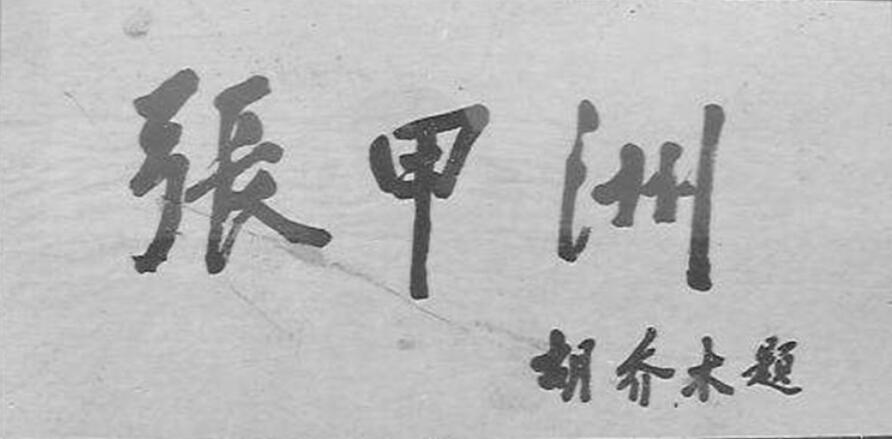 張甲洲
胡乔木题